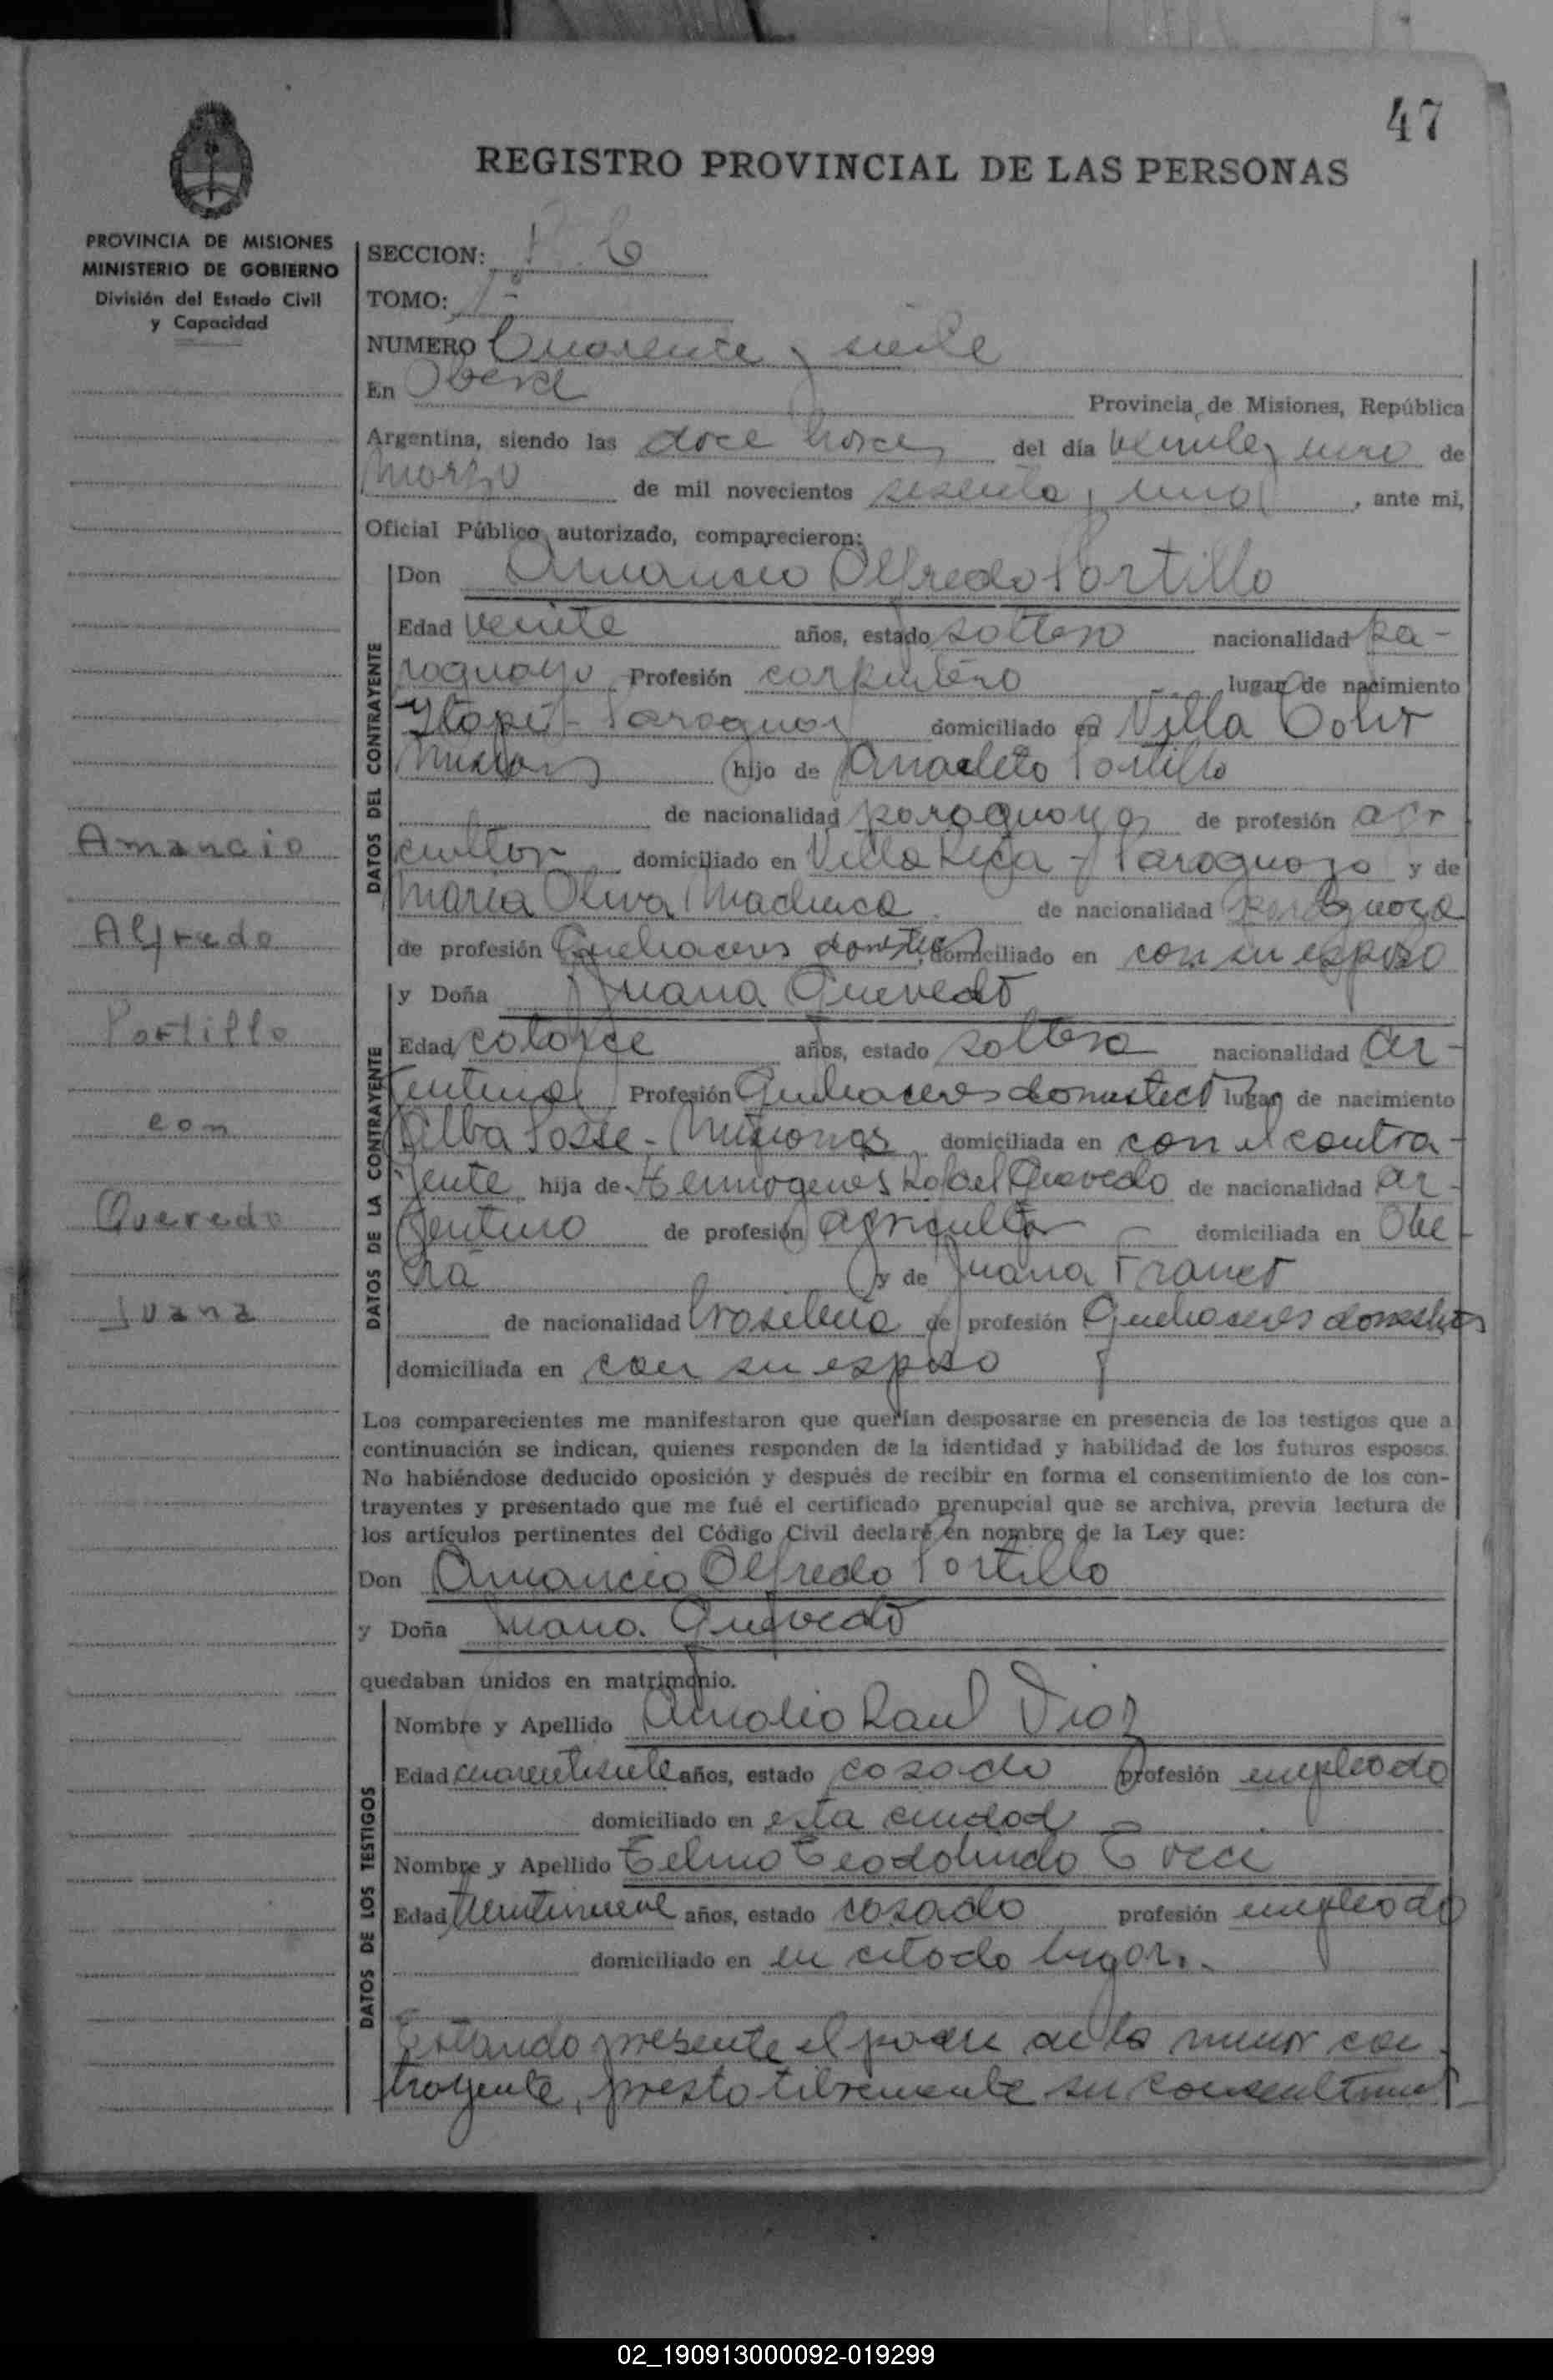 47
REGISTRO PROVINCIAL DE LAS PERSONAS
PROVINCIA DE MISIONES
MINISTERIO DE GOBIERNO
División del Estado Civil
y Capacidad
SECCION:
TOMO: 1º
NUMERO Cuarenta y siete
En Oberá Provincia de Misiones, República
Argentina, siendo las doce horas del día veinte y uno de
Marzo de mil novecientos sesenta y uno, ante mi,
Oficial Público autorizado, comparecieron:
DATOS DEL CONTRAYENTE
Don Amancio Alfredo Portillo
Edad veinte años, estado soltero nacionalidad pa-
raguayo Profesión carpintero lugar de nacimiento
Paraguay domiciliado en Villa
hijo de Anacleto Portillo
de nacionalidad paraguayo de profesión agri
cultor domiciliado en Villa Rica - Paraguayo y de
María Oliva Machuca de nacionalidad paraguaya
de profesión Quehaceres domiciliado en con su esposo
DATOS DE LA CONTRAYENTE
y Doña Juana Quevedo
Edad catorce años, estado soltera nacionalidad ar-
gentina Profesión Quehaceres domestico lugar de nacimiento
Alba Posse - Misiones domiciliada en con el contra-
yente hija de Hermogenes Rafael Quevedo de nacionalidad ar-
gentino de profesión agricultor domiciliada en Obe
rá y de Juana Franco
de nacionalidad brasileña de profesión Quehaceres domesticos
domiciliada en con su esposo
Los comparecientes me manifestaron que querían desposarse en presencia de los testigos que a
continuación se indican, quienes responden de la identidad y habilidad de los futuros esposos.
No habiéndose deducido oposición y después de recibir en forma el consentimiento de los con-
trayentes y presentado que me fué el certificado prenupcial que se archiva, previa lectura de
los artículos pertinentes del Código Civil declaré en nombre de la Ley que:
Don Amancio Alfredo Portillo
y Doña Juana Quevedo
quedaban unidos en matrimonio.
DATOS DE LOS TESTIGOS
Nombre y Apellido Raul Diaz
Edad cuarentisiete años, estado casado profesión empleado
domiciliado en esta ciudad
Nombre y Apellido Telmo Teodolindo
Edad años, estado casado profesión empleado
domiciliado en en citado lugar.
Estando presente el padre de la menor con
trayente, presto libremente su
Amancio
Alfredo
Portillo
con
Quevedo
Juana
02_190913000092-019299